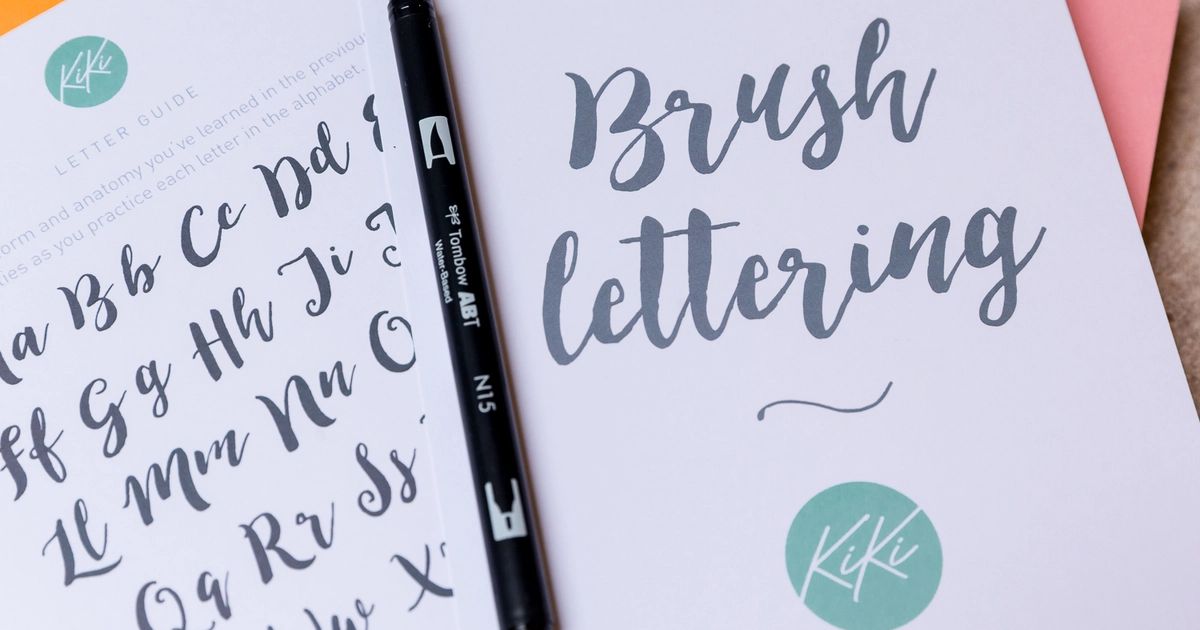 KiKi
LETTER GUIDE
form and anatomy you've learned in the previous
as you practice each letter in the alphabet.
a Bb Cc Dd
Ff Gg Hh Ii
Ll Mm Nn O
Qq Rr Ss
X
Tombow ABT
Water-Based
N15
Brush
lettering
KiKi